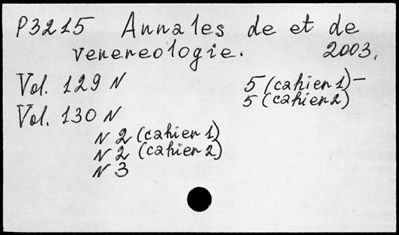 P3215 Annales de et de
venereologie. 2003.
Vol. 129 N 5 (cahier 1)-
5 (cahier 2)
Vol. 130 N
N 2 (cahier 1)
N 2 (cahier 2)
N 3